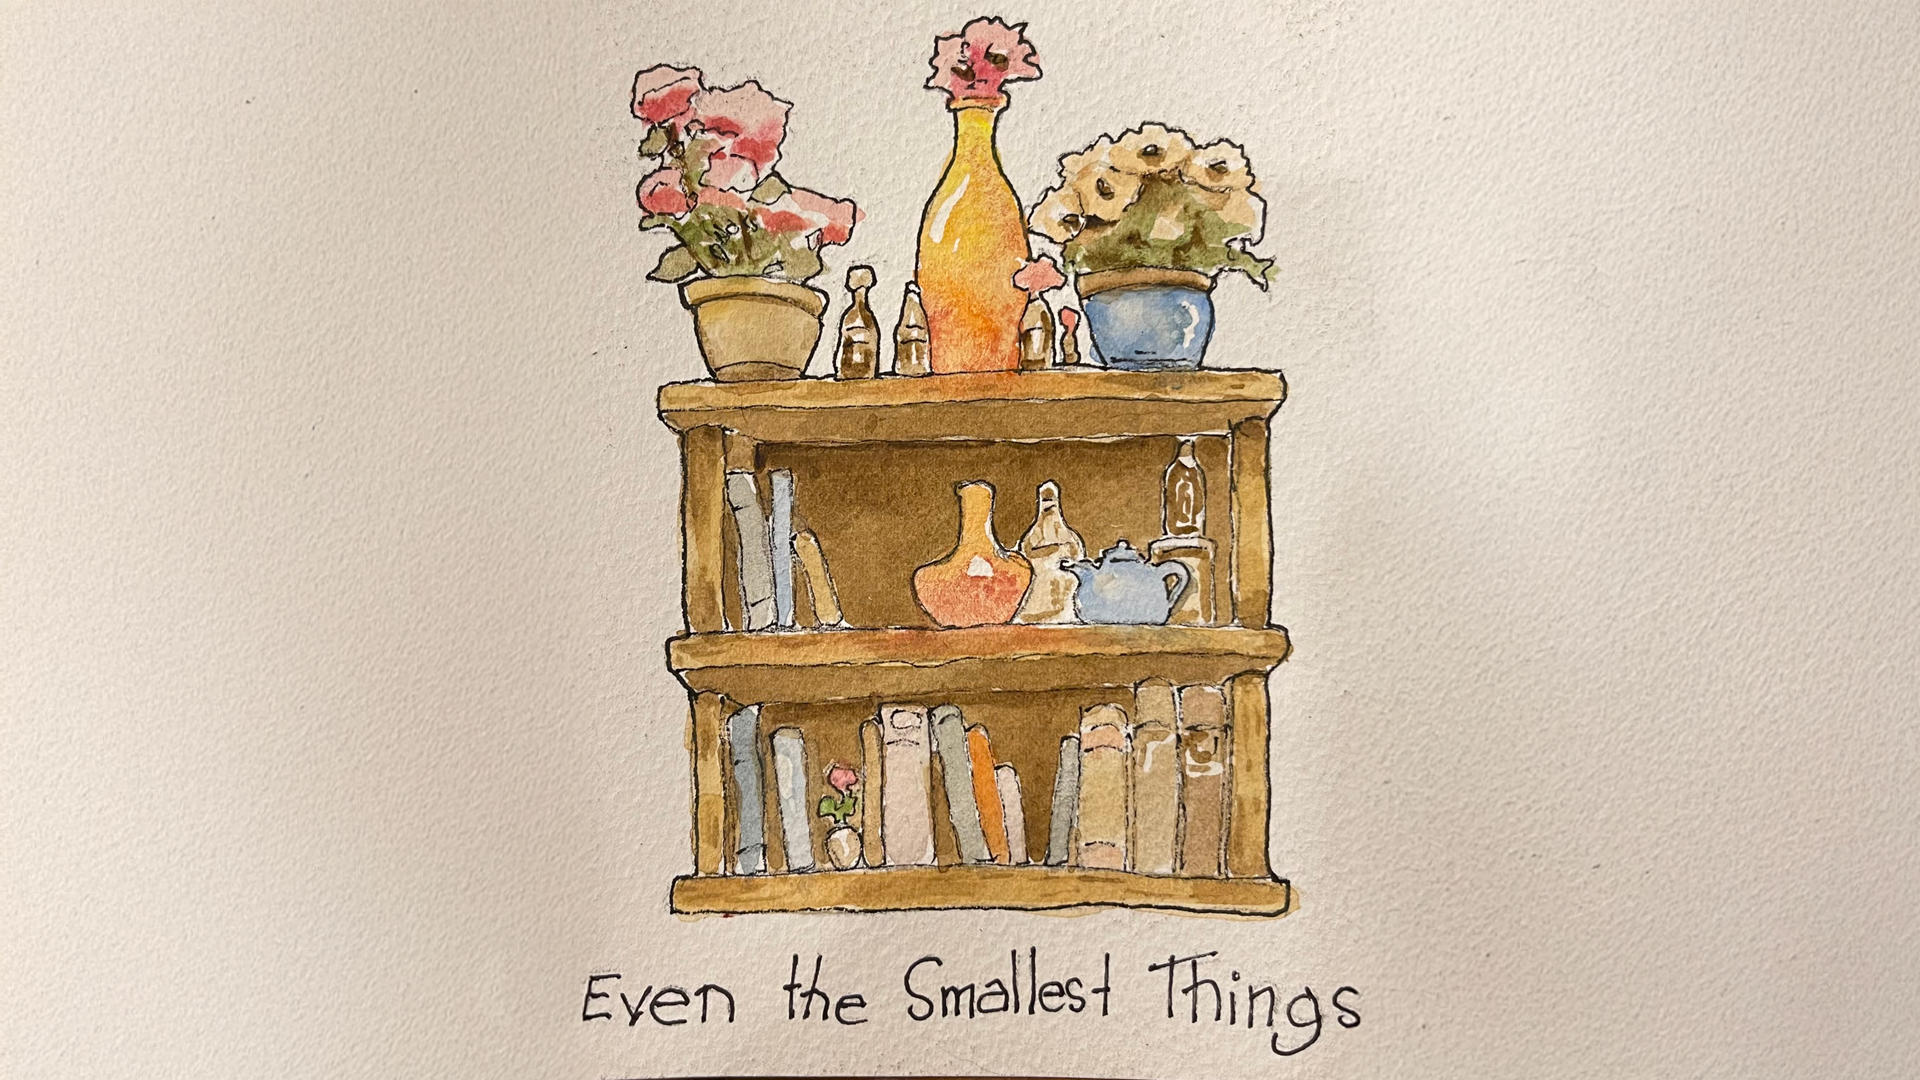 Even the Smallest Things